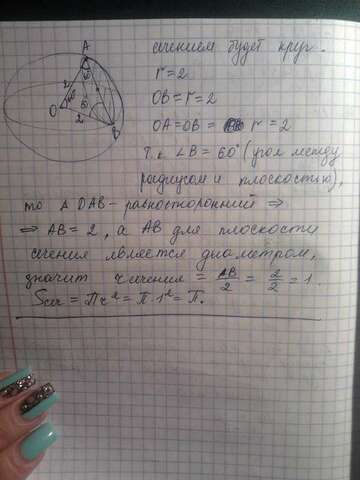 сечением будет круг.
r=2
OB=r=2
OA=OB= r=2
т.к ∠B=60° (угол между
радиусом и плоскостью),
A
2
60
60
60
O
2
B
то Δ OAB – равносторонний ⇒
⇒ AB=2, а AB для плоскости
сечения является диаметром,
значит r сечения = AB/2 = 2/2 = 1.
Sсеч = Пr² = П·1² = П.